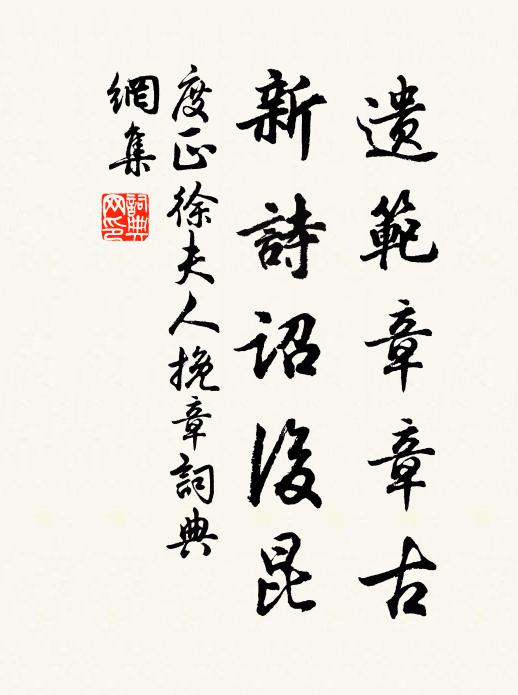 遺範章章古
新詩詔後昆
度正徐夫人挽章詞典
網集
詞典
网印